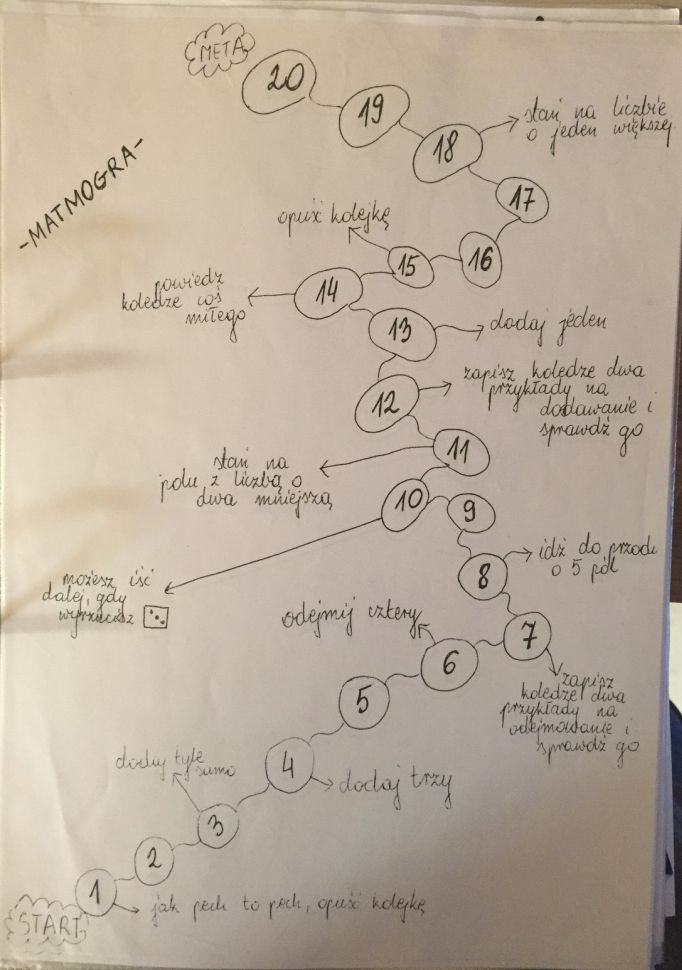 META
20
19
18
stań na liczbie
o jeden większej
-MATMOGRA-
17
opuść kolejkę
16
15
14
powiedz
koledze coś
miłego
13
dodaj jeden
12
zapisz koledze dwa
przykłady na
dodawanie i
sprawdź go
11
stań na
polu z liczbą o
dwa mniejszą
10
9
możesz iść
dalej, gdy
wyrzucisz
8
idź do przodu
o 5 pól
7
zapisz
koledze dwa
przykłady na
odejmowanie i
sprawdź go
odejmij cztery
6
5
4
dodaj trzy
dodaj tyle
samo
3
2
1
jak pech to pech, opuść kolejkę
START